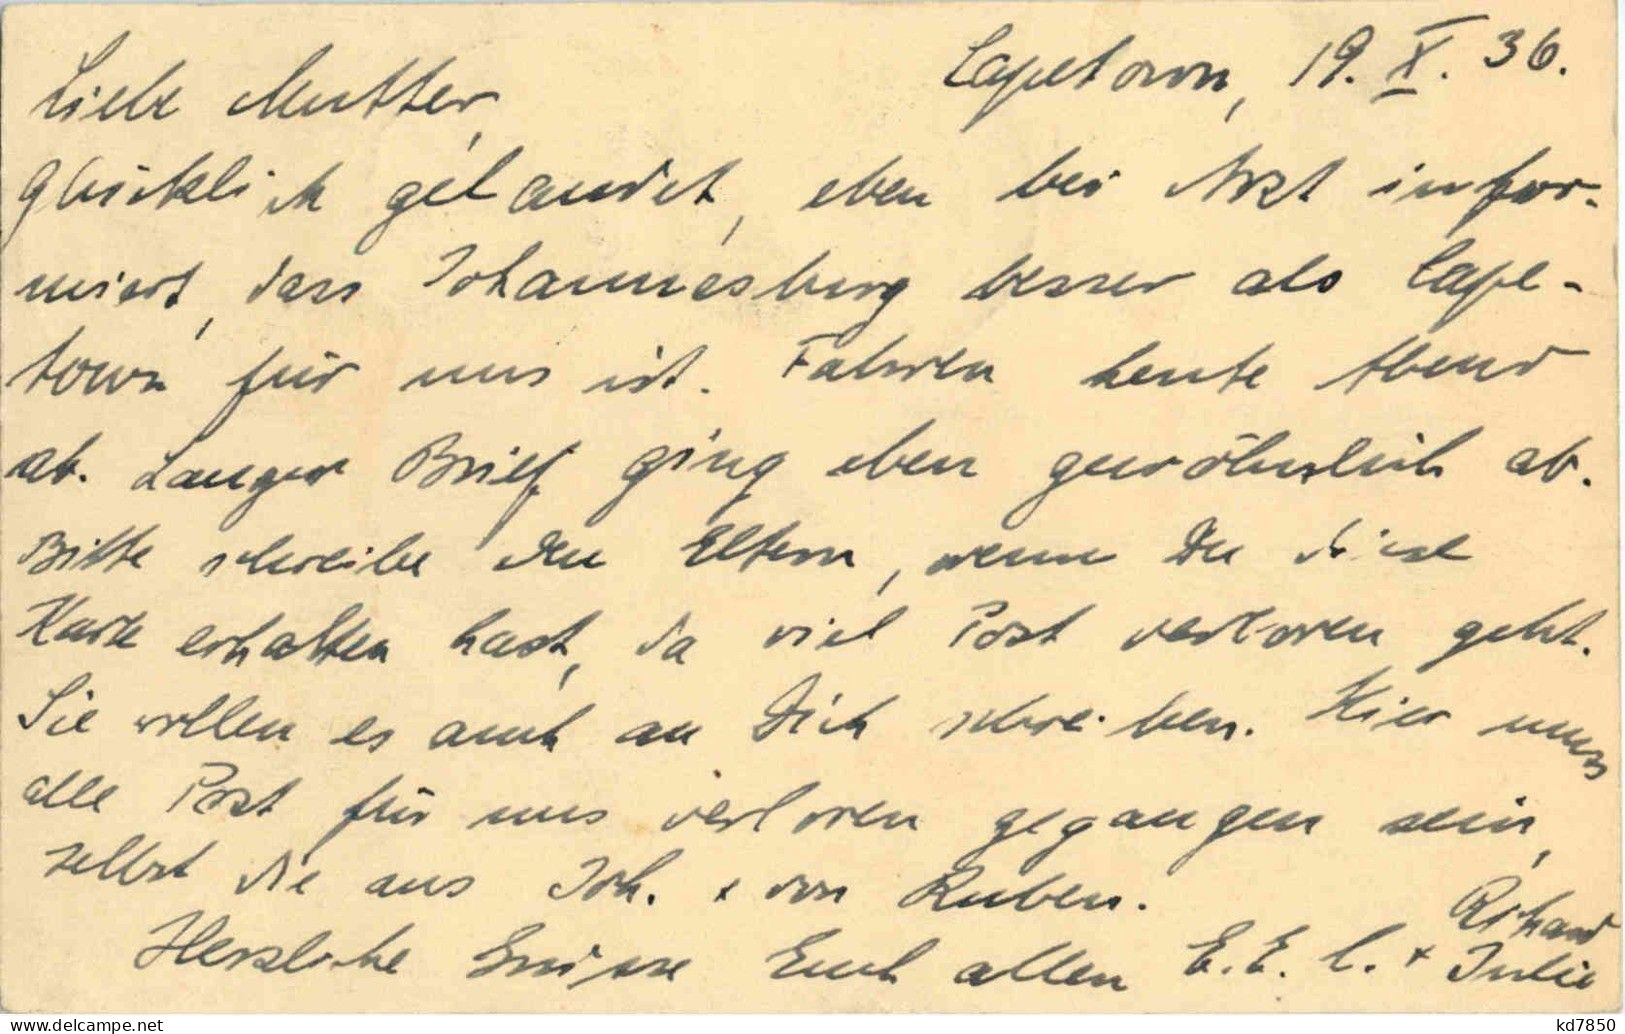 Capetown, 19. X. 36.
Liebe Mutter,
glücklich gelandet, eben bei Arzt infor-
miert, dass Johannesburg besser als Cape-
town für uns ist. Fahren heute Abend
ab. Langer Brief ging eben gewöhnlich ab.
Bitte schreibe den Eltern, wenn Du diese
Karte erhalten hast, da viel Post verloren geht.
Sie wollen es auch an Dich schreiben. Hier muss
alle Post für uns verloren gegangen sein,
selbst die aus Joh. + von Ruben.
Herzliche Grüsse Euch allen E. E. l. + Richard
Julie
kd7850